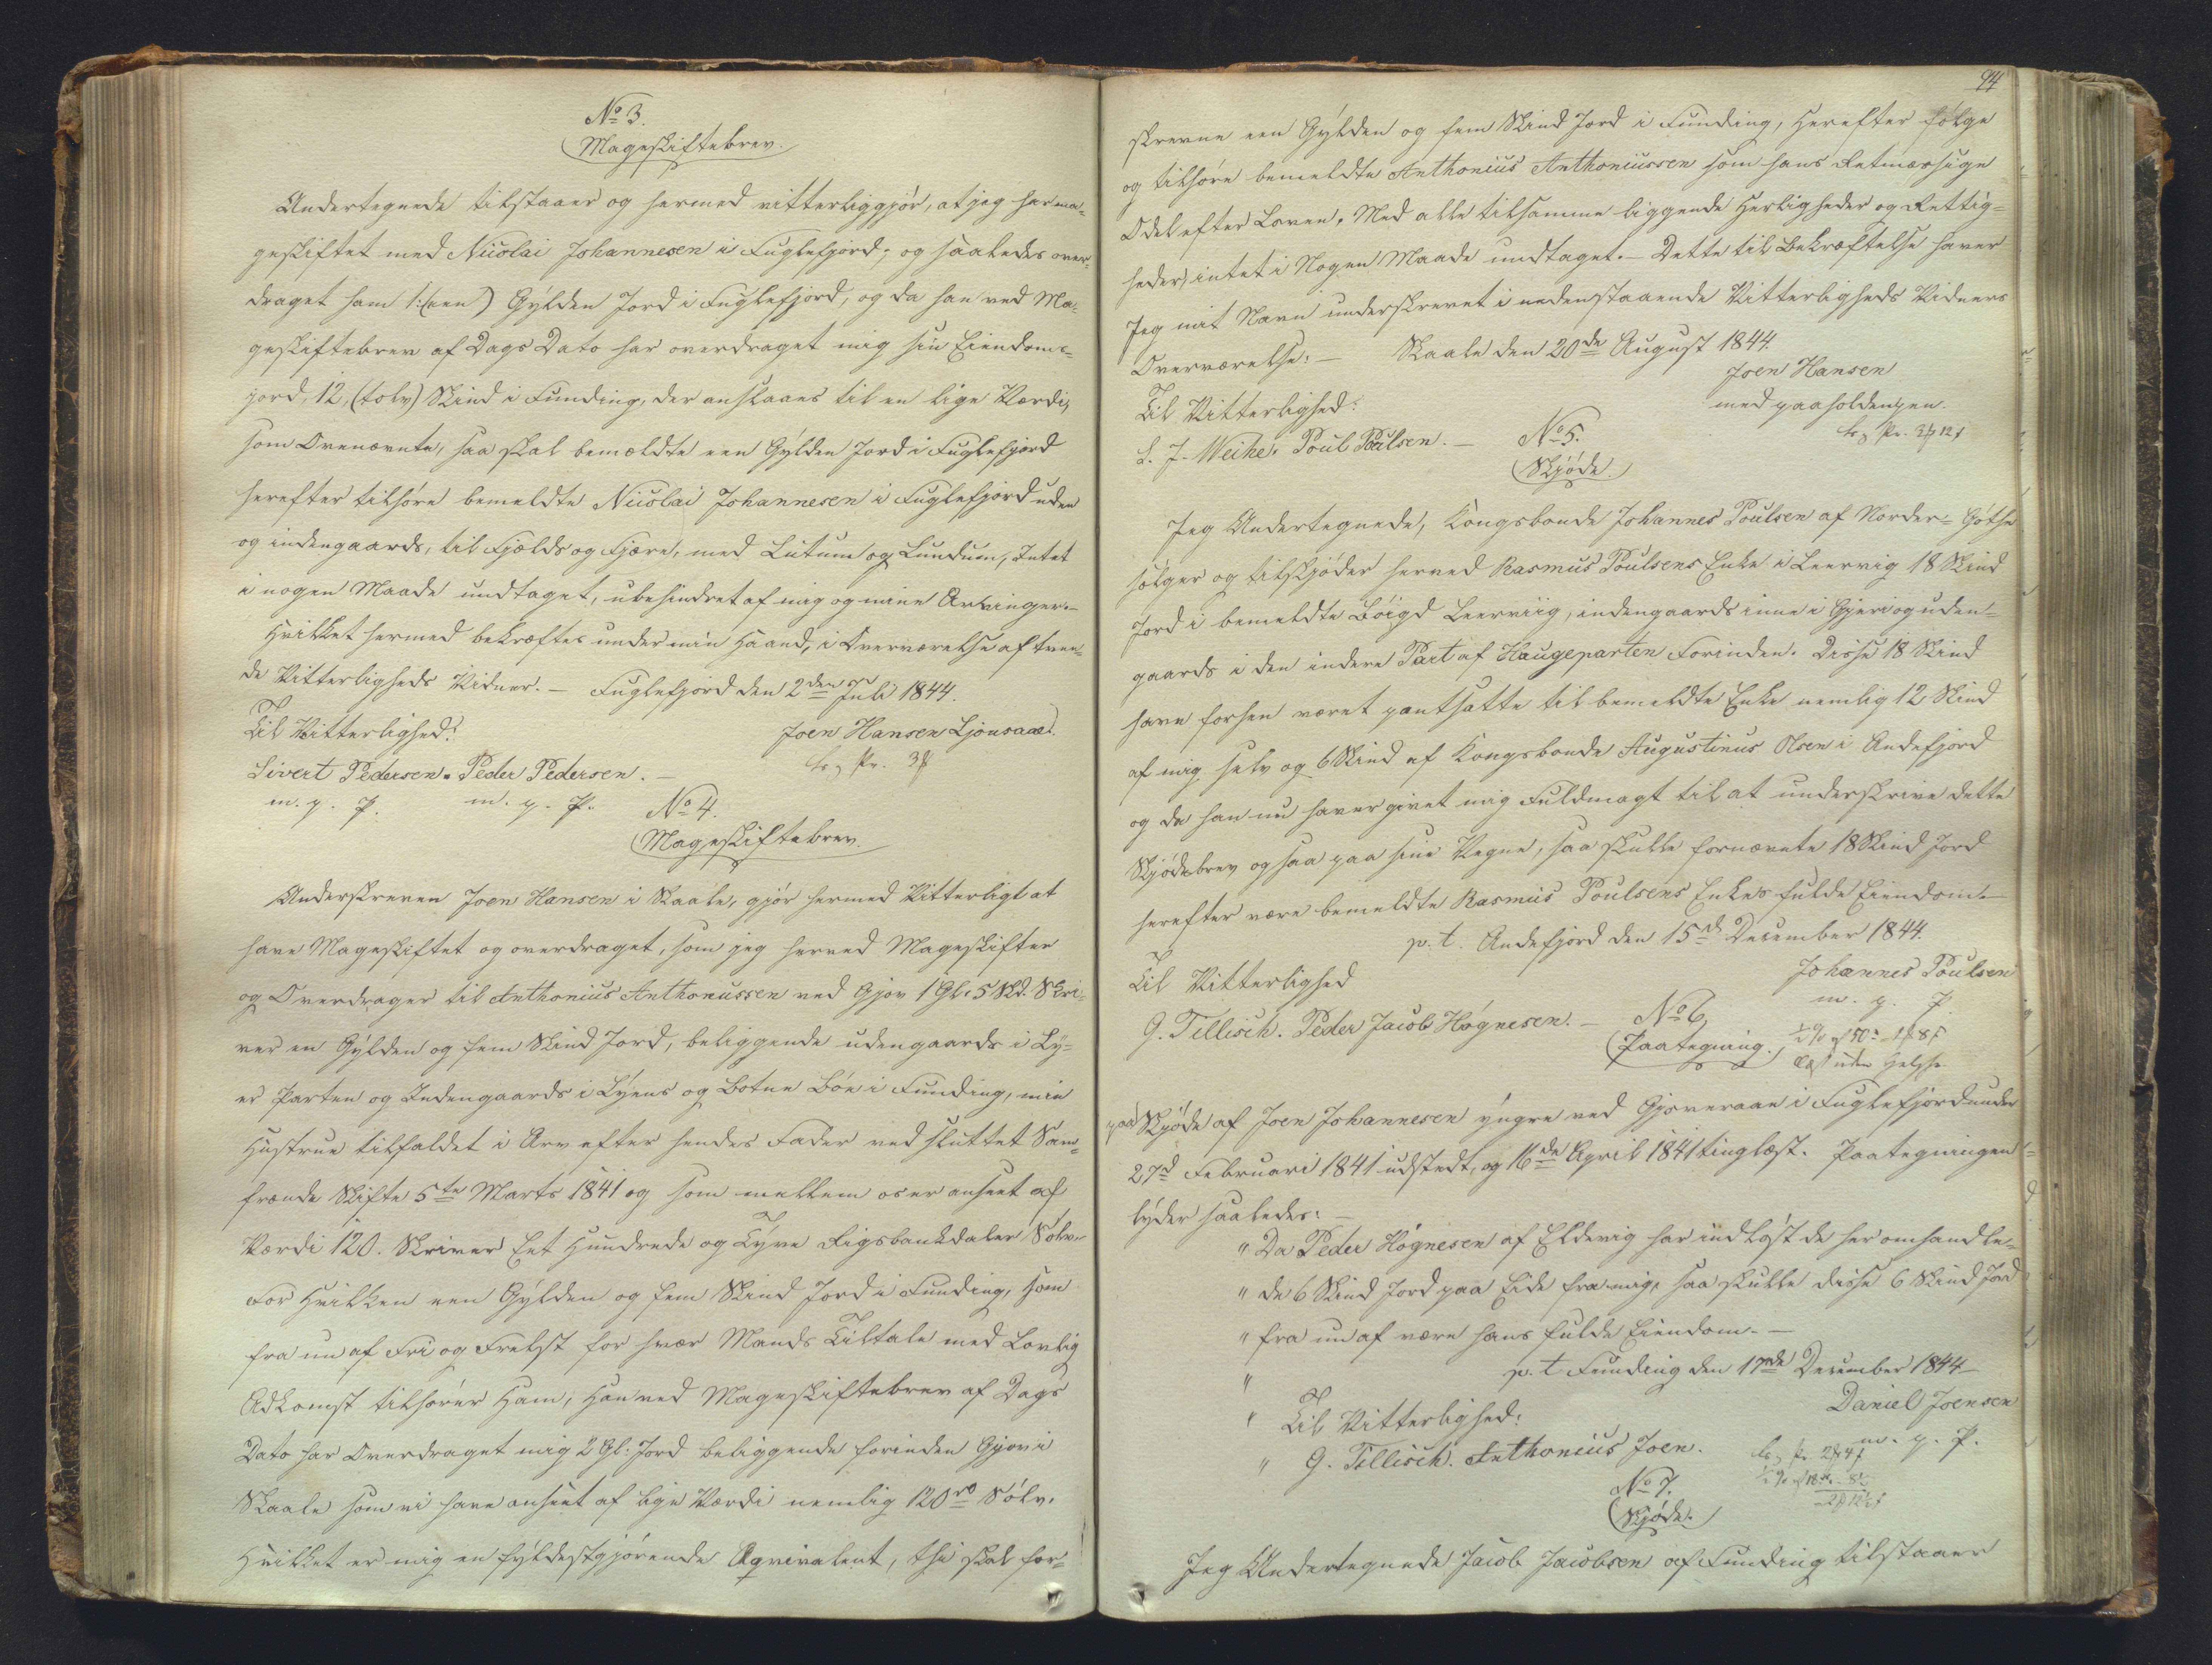 No 3.
Mageskiftebrev.
Undertegnede tilstaaer og hermed vitterliggjör, at jeg har ma-
geskiftet med Nicolai Johannesen i Fuglefjord; og saaledes over-
draget ham 1: (een) Gylden Jord i Fuglefjord, og da han ved Ma-
geskiftebrev af Dags Dato har overdraget mig sin Eiendoms-
jord, 12, (tolv) Skind i Funding, der ansslaaes til en lige Værdi,
som Ovenævnte, saa skal bemældte een Gylden Jord i Fuglefjord
herefter tilhöre bemeldte Nicolai Johannesen i Fuglefjord uden
og indengaards, til Fjelds og Fjære, med Lutum og Lundum, Intet
i nogen Maade undtaget, ubehindret af mig og mine Arvinger.-
Hvilket hermed bekræftes under min Haand, i Overværelse af tven-
de Vitterligheds Vidner. - Fuglefjord den 2den Juli 1844.
Til Vitterlighed: Joen Hansen Ljonsaae.
Sivert Pedersen. Peder Pedersen. -
m. p. P. m. p. P.
No 4.
Mageskiftebrev.
Underskreven Joen Hansen i Skaale, gjör hermed Vitterligt at
have Mageskiftet og overdraget, som jeg herved Mageskifter
og Overdrager til Anthonius Anthonussen ved Gjov 1 Gl. 5 Skd. Skri-
ver en Gylden og fem Skind Jord, beliggende udengaards i Ly-
er Parten og Indengaards i Lyens og Botne Böe i Funding, min
Hustrue tilfaldet i Arv efter hendes Fader ved sluttet Sam-
frænde Skifte 5te Marts 1841 og som mellem os er anseet af
Værdi 120. Skriver Eet Hundrede og Tyve Rigsbankdaler Sölv.
For Hvilken een Gylden og fem Skind Jord i Funding, som
fra nu af Fri og Frelst for hver Mands Tiltale med Lovlig
Adkomst tilhörer Ham, Han ved Mageskiftebrev af Dags
Dato har Overdraget mig 2 Gl: Jord beliggende forinden Gjov i
Skaale som vi have anseet af lige Værdi nemlig 120 rd Sölv.
Hvilket er mig en fyldestgjörende Eqvivalent, thi skal for-
94
skrevne een Gylden og fem Skind Jord i Funding, Herefter fölge
og tilhöre bemeldte Anthonius Anthoniussen som hans Retmæssige
Odel efter Loven. Med alle tilsamme liggende Herligheder og Rettig-
heder, intet i Nogen Maade undtaget. - Dette til Bekræftelse haver
Jeg mit Navn underskrevet i nedenstaaende Vitterligheds Vidners
Overværelse: - Skaale den 20de August 1844.
Joen Hansen
Til Vitterlighed: med paaholden pen.
S. J. Weihe. Poul Poulsen. -
No 5.
Skjöde.
Jeg Undertegnede, Kongsbonde Johannes Poulsen af Norder-Göthe
sælger og tilskjöder herved Rasmus Poulsens Enke i Leervig 18 Skind
Jord i bemeldte Böigd Leerviig, indengaards inne i Gjeri og uden-
gaards i den indere Part af Haugeparten Forinden. Disse 18 Skind
have forhen været pantsatte til bemeldte Enke nemlig 12 Skind
af mig selv og 6 Skind af Kongsbonde Augustinus Olsen i Andefjord
og da han nu haver givet mig Fuldmagt til at underskrive dette
Skjödebrev ogsaa paa sine Vegne, saa skulle fornævnte 18 Skind Jord
herefter være bemeldte Rasmus Poulsens Enkes fulde Eiendom. -
p. t. Andefjord den 15d December 1844.
Til Vitterlighed Johannes Poulsen
m. p. P
G. Tillisch. Peder Jacob Högnesen. -
No 6.
Paategning.
paa Skjöde af Joen Johannesen yngre ved Gjoveraae i Fuglefjord under
27d Februari 1841 udstedt, og 16de April 1841 tinglæst. Paategningen
lyder saaledes: -
" Da Peder Högnesen af Eldevig har indlöst de her omhandle-
" de 6 Skind Jord paa Eide fra mig, saa skulle disse 6 Skind Jord
" fra nu af være hans fulde Eiendom. -
" p. t Funding den 17nde December 1844 -
" Til Vitterlighed: Daniel Joensen
m. p. P.
" G. Tillisch. Anthonius Joen.
No 7.
Skjöde.
Jeg Undertegnede Jacob Jacobsen af Funding tilstaaer